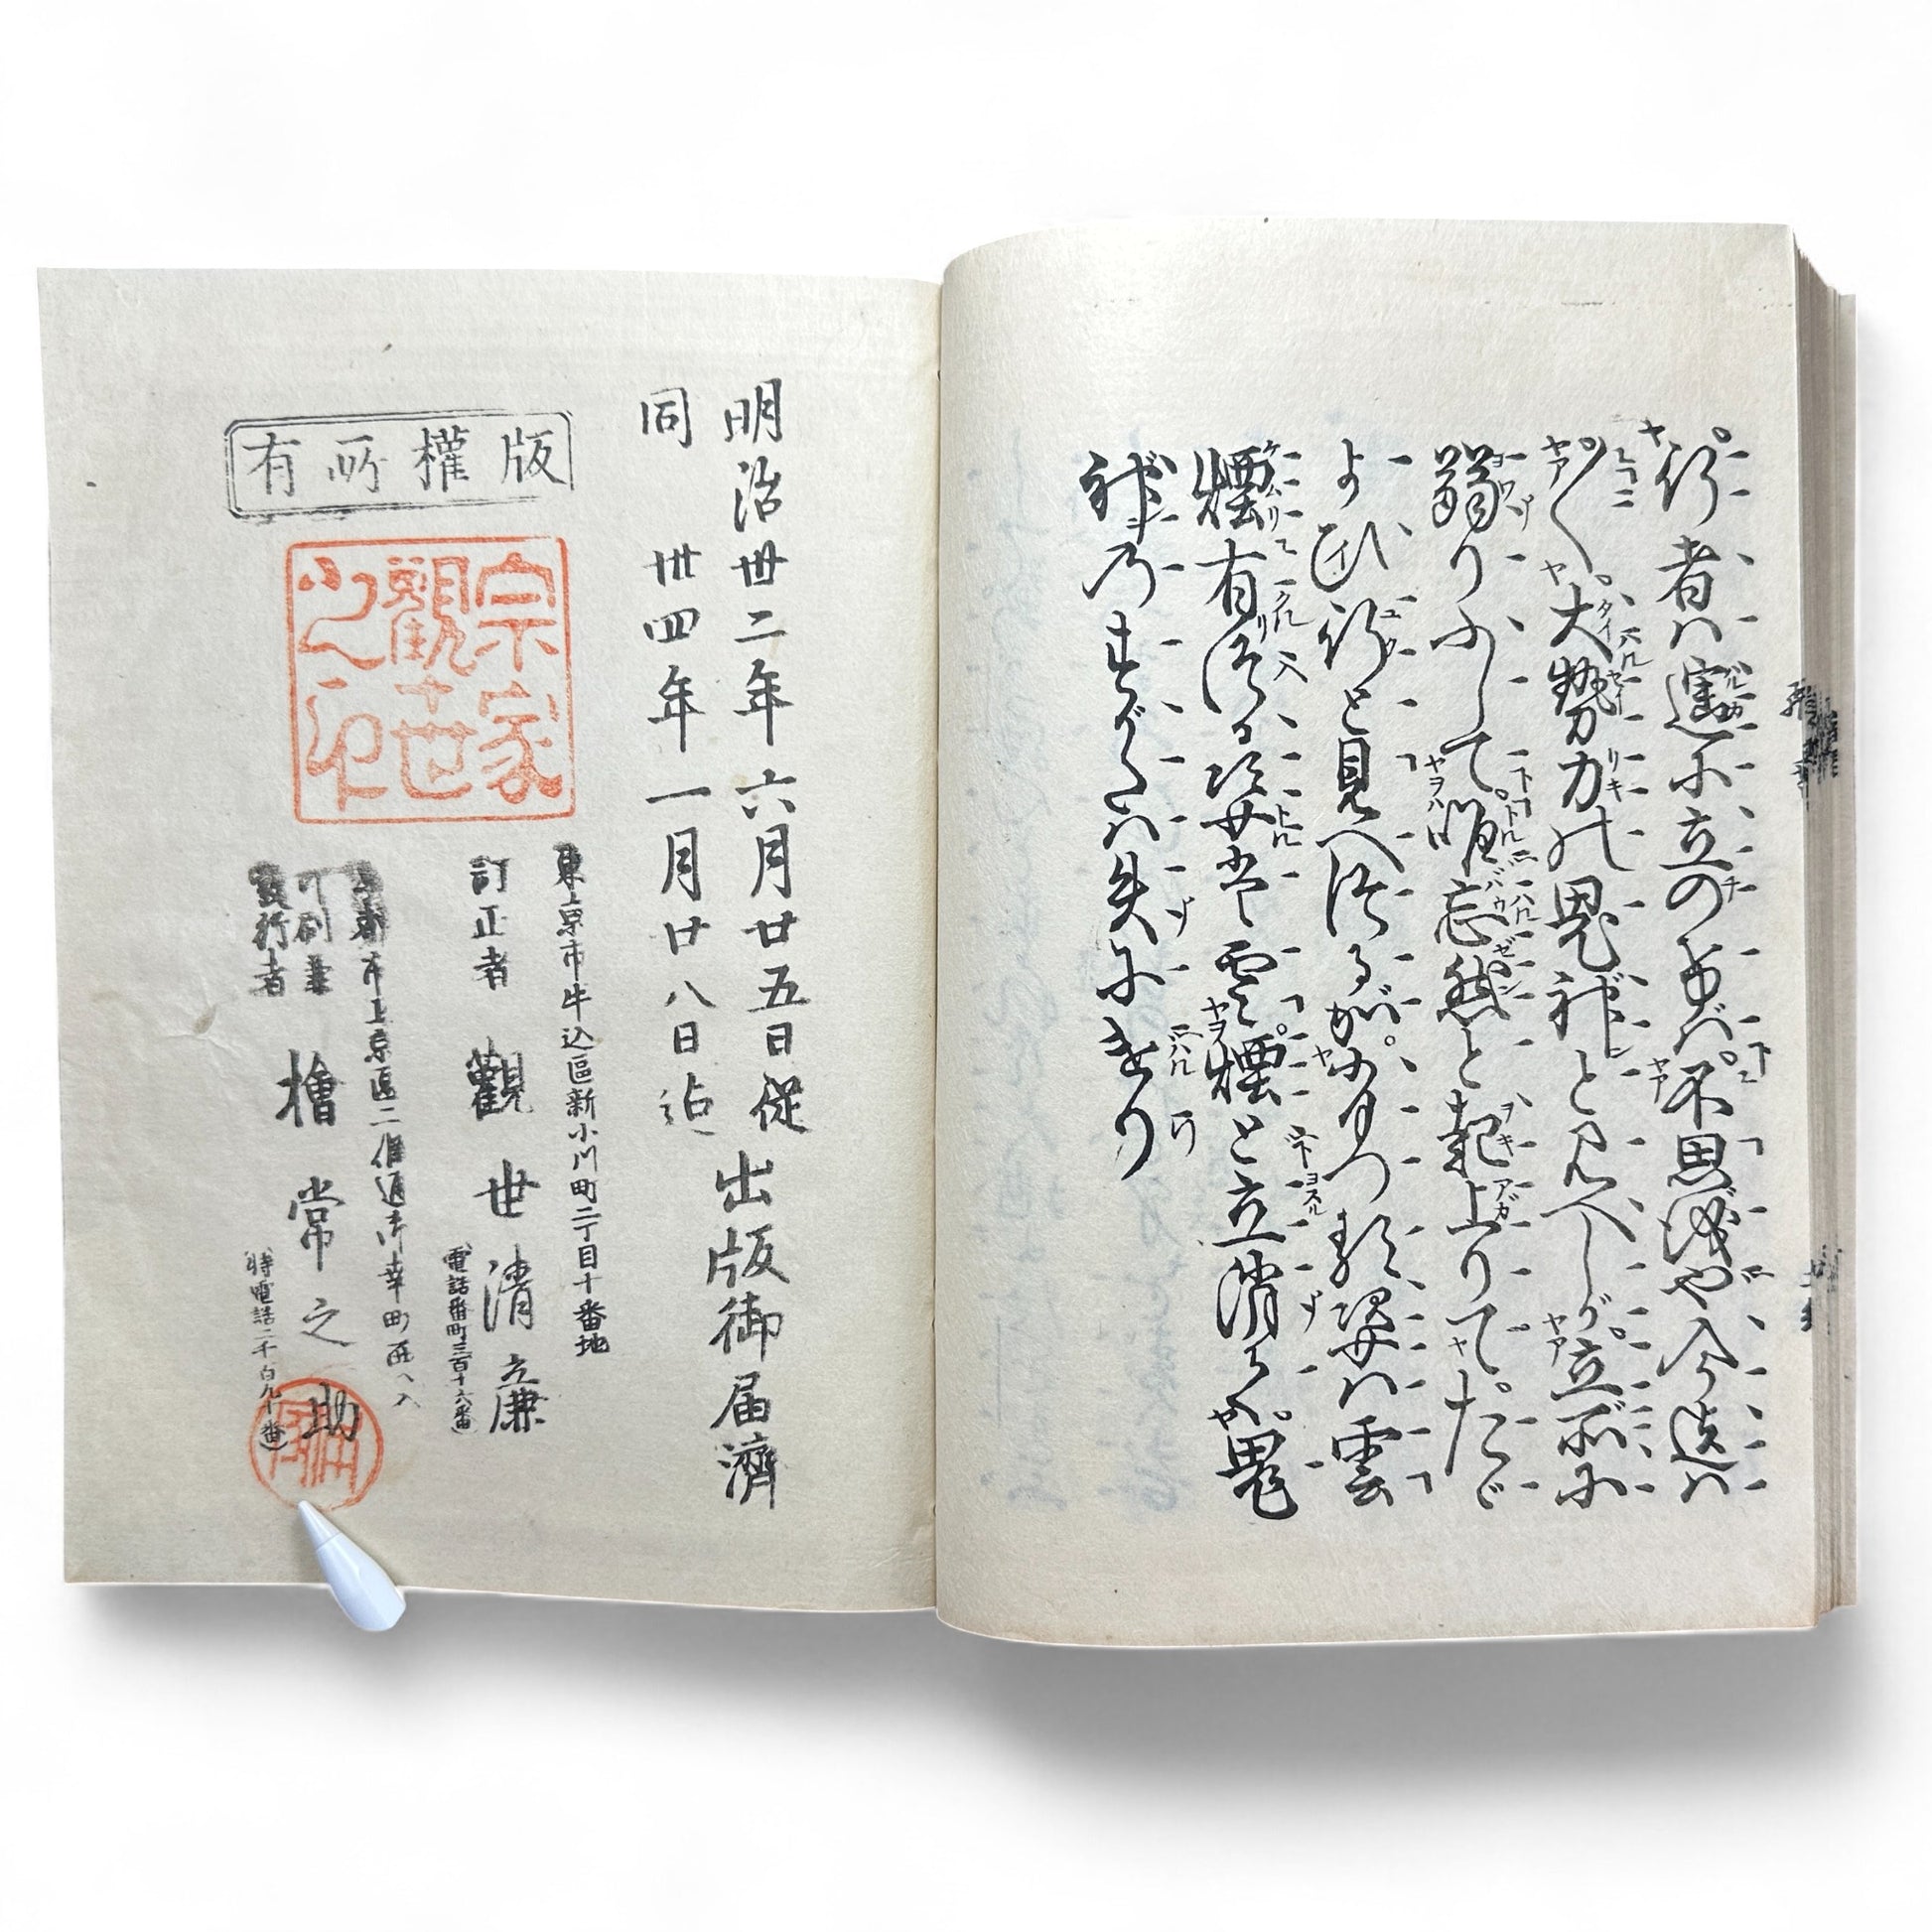 行者ハ遥に立のけば。不思議や今迄ハ
〳〵。大勢力の鬼神と見へしが。立所に
弱りふして。唯忘然と起上りて。たゞ
よひ行と見へつるが。ありつる形姿ハ雲
煙有つる形姿も雲煙と立消て。鬼
神のすがたハ失にけり
明治卅二年六月廿五日從出版御届濟
同 卅四年一月廿八日迠
版權所有
宗家觀世之印
東京市牛込區新小川町二丁目十番地
訂正者 觀世清廉
(電話番町三百十六番)
京都市上京區二條通御幸町西へ入
印刷兼
發行者 檜常之助
(特電話二千百九十番)